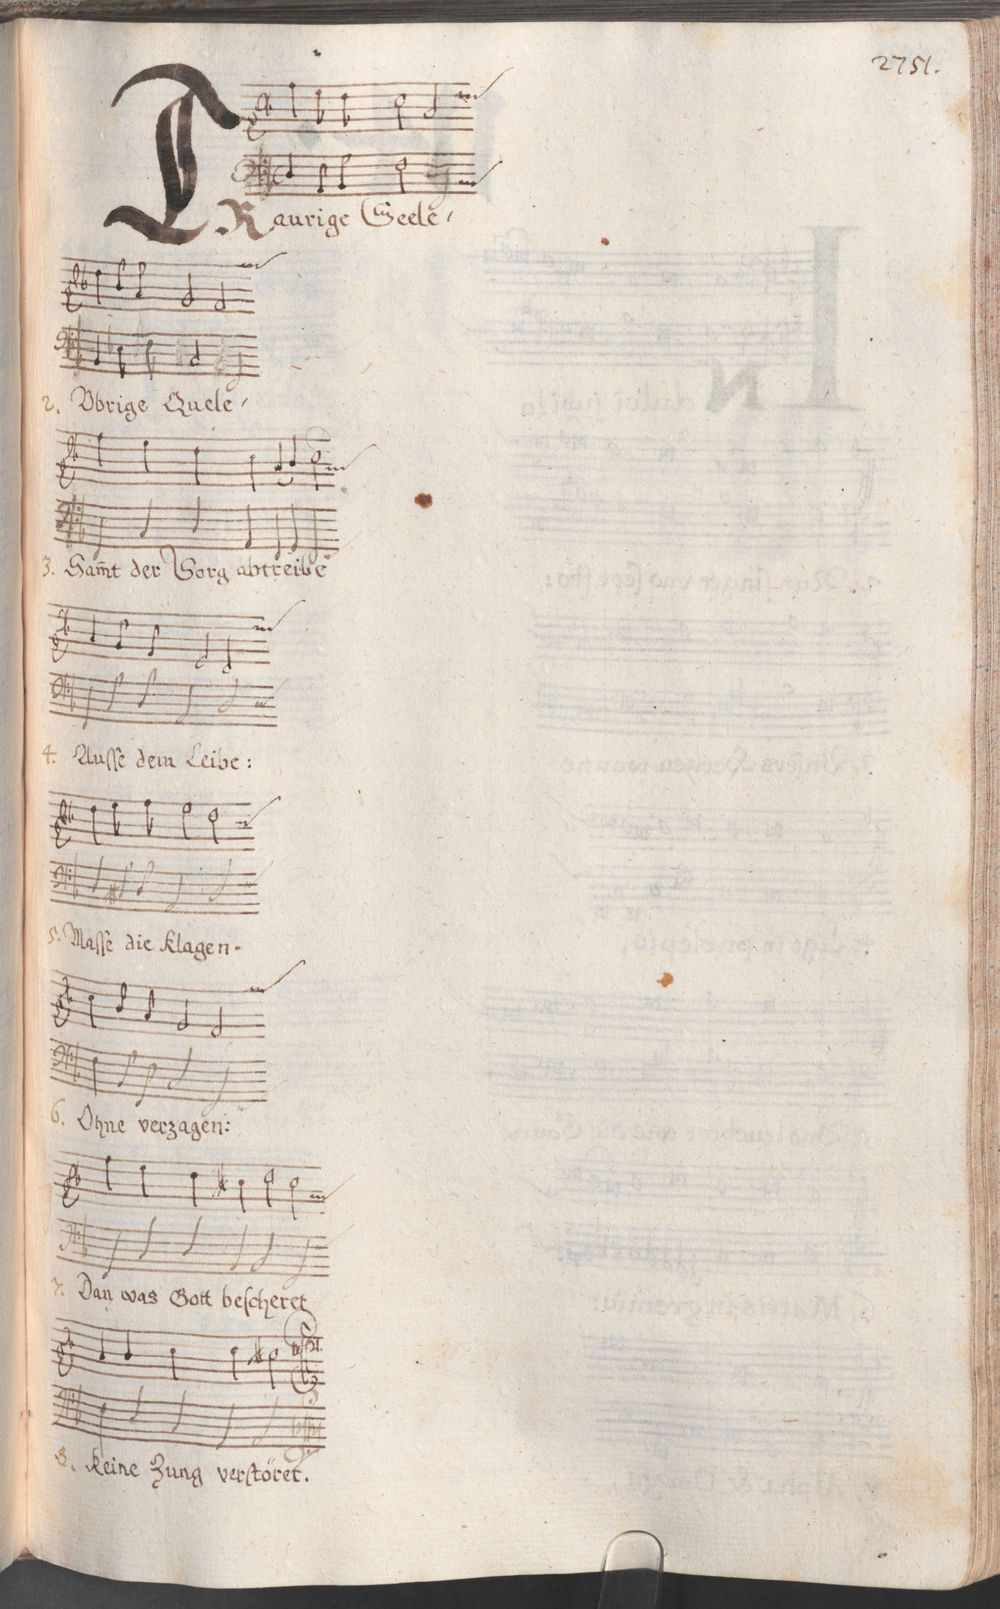 2751.
TRaurige Seele,
2. Vbrige Quele,
3. Sam̄t der Sorg abtreibe
4. Ausse dem Leibe:
5. Masse die klagen.
6. Ohne verzagen:
7. Dan was Gott bescheret
8. keine Zung verstöret.